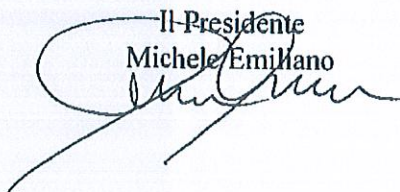 Il Presidente
Michele Emiliano